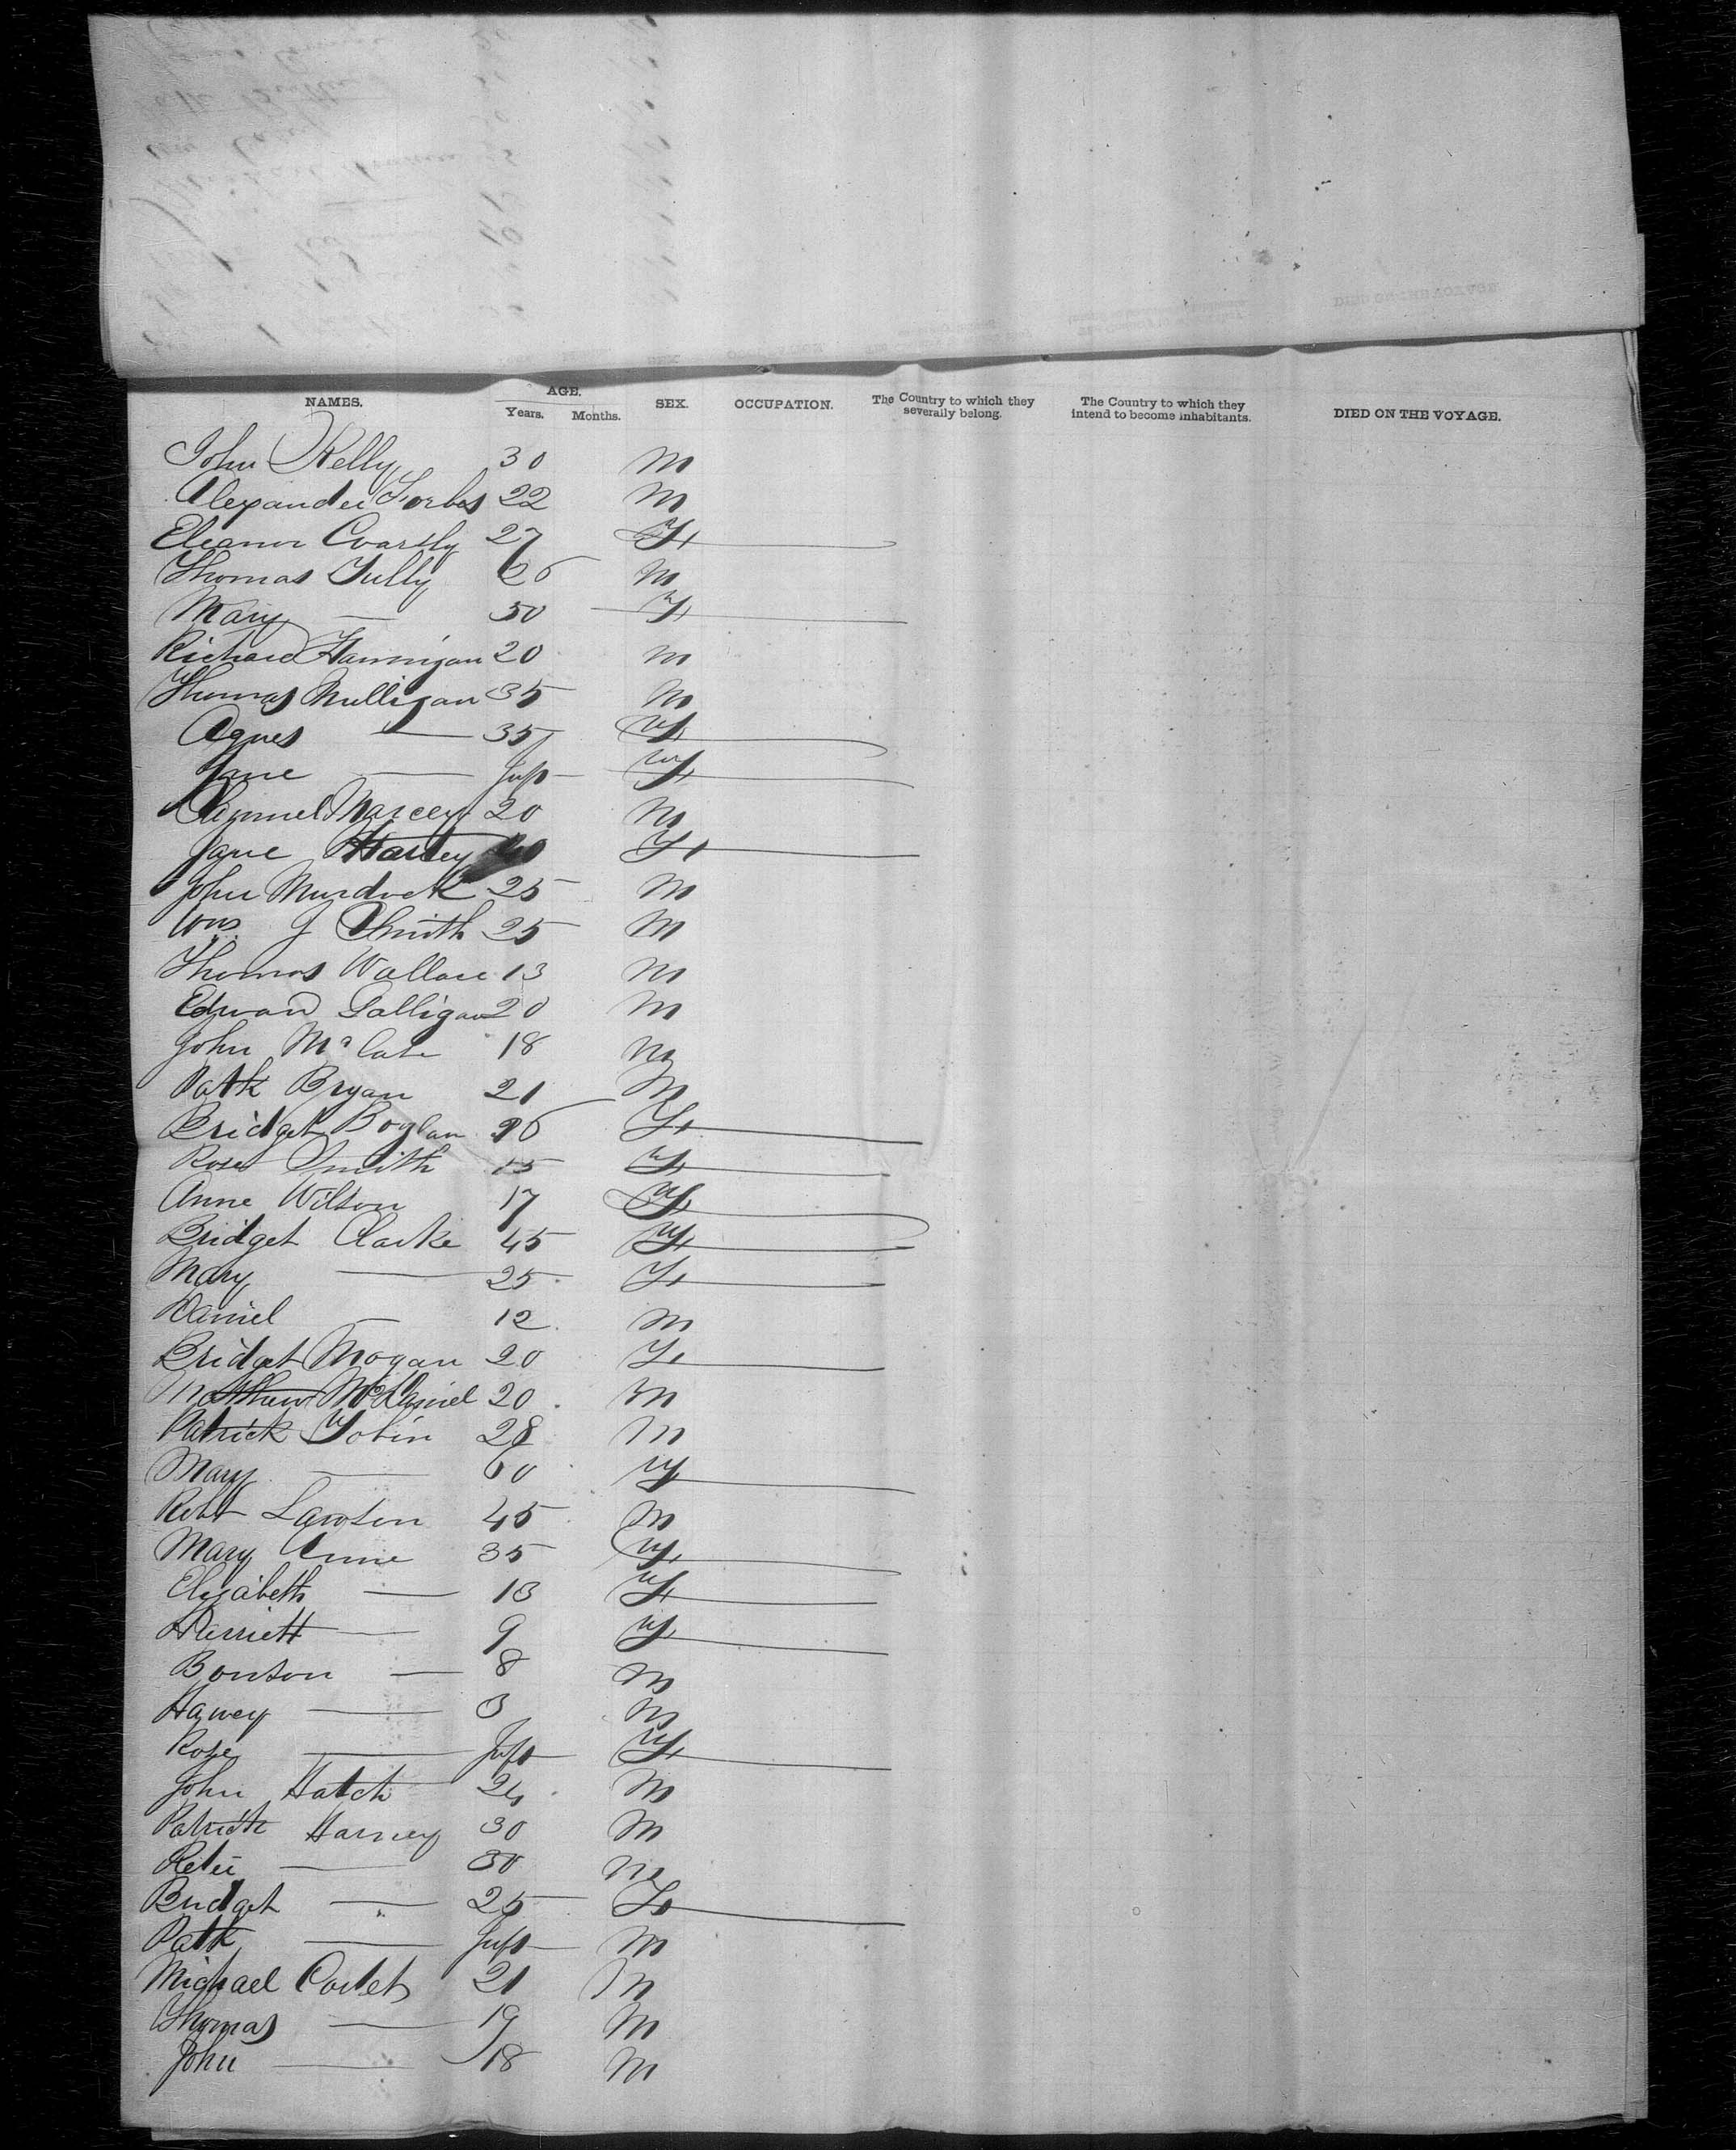 NAMES. AGE. Years. Months. SEX. OCCUPATION. The Country to which they severally belong. The Country to which they intend to become inhabitants. DIED ON THE VOYAGE.
John Kelly 30 M
Alexander Forbes 22 M
Eleanor 27 F
Thomas Tully 26 M
Mary — 50 F
Richard Hannigan 20 M
Thomas Mulligan 35 M
Agnes — 35 F
Jane — Inft F
Samuel 20 M
Jane F
John Murdock 25 M
Wm J Smith 25 M
Thomas Wallace 13 M
Edward Galligan 20 M
John McCabe 18 M
Patk Bryan 21 M
Bridget Boylan 26 F
Rose Smith 15 F
Anne Wilson 17 F
Bridget Clarke 45 F
Mary — 25 F
Daniel — 12 M
Bridget Mogan 20 F
Matthew McDaniel 20 M
Patrick Tobin 28 M
Mary — 60 F
Robt Lawson 45 M
Mary Anne 35 F
Elizabeth — 13 F
Harriett — 9 F
Bonson — 8 M
Harvey — 3 M
Rose — Inft F
John Hatch 24 M
Patrick Harney 30 M
Peter — 30 M
Bridget — 25 F
Patk — Inft M
Michael 21 M
Thomas — 19 M
John — 18 M